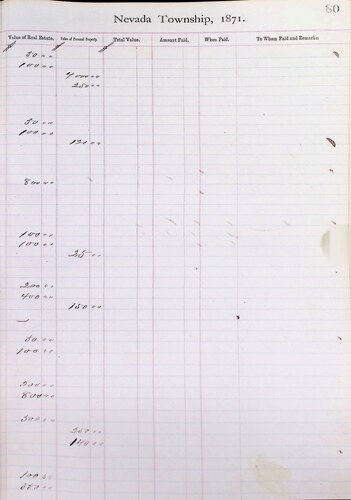 80
Nevada Township, 1871.
Value of Real Estate. Value of Personal Property. Total Value. Amount Paid. When Paid. To Whom Paid and Remarks.
50 00
100 00
400 00
250 00
50 00
100 00
120 00
800 00
100 00
100 00
25 00
200 00
400 00
150 00
100 00
200 00
800 00
300 00
140 00
100 00